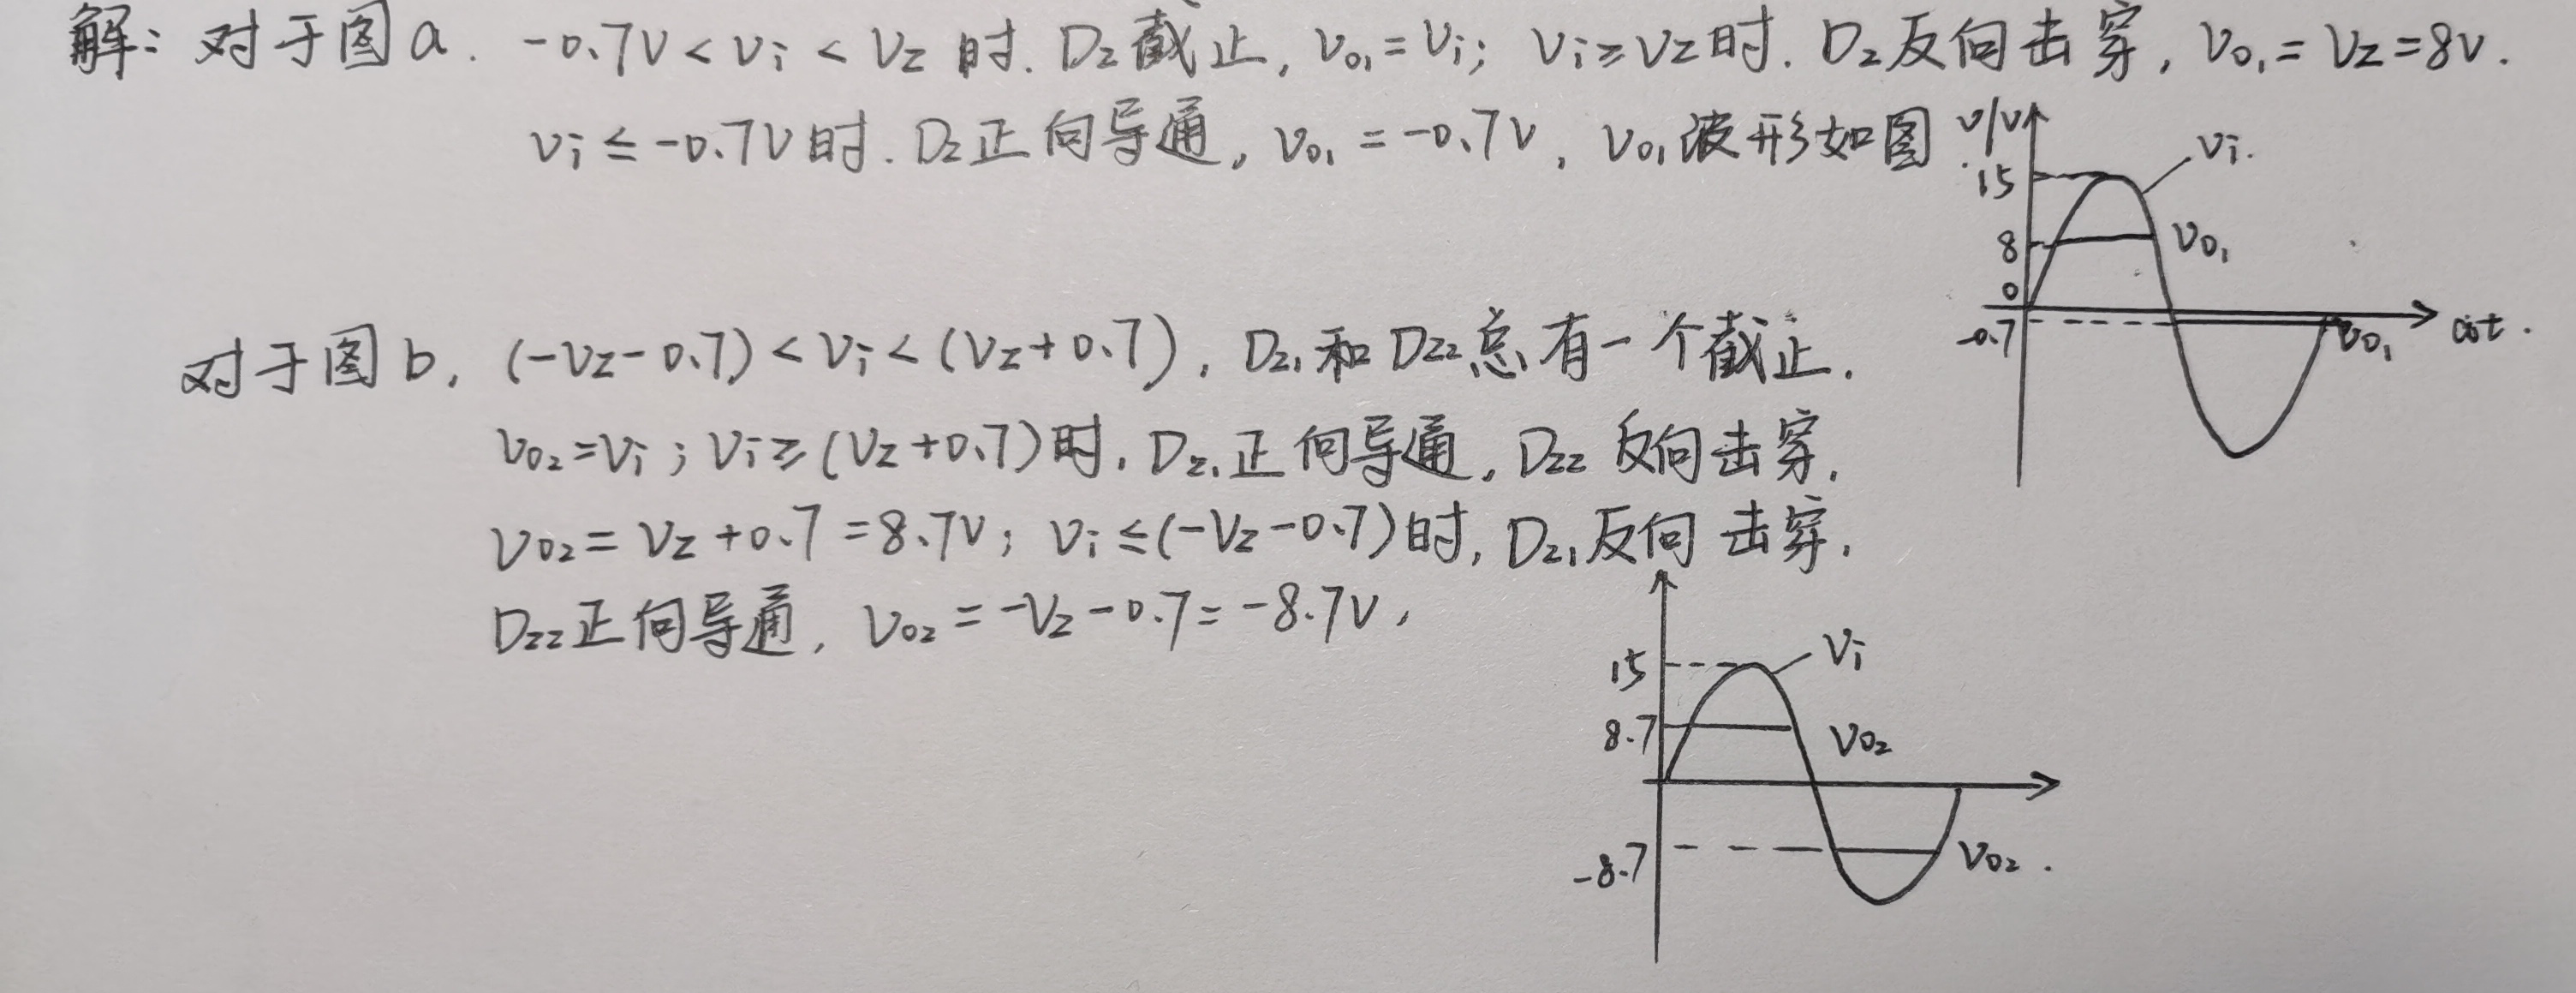 解：对于图a. -0.7V < Vi < VZ 时. DZ截止, Vo1 = Vi; Vi ≥ VZ时. DZ反向击穿, Vo1 = VZ = 8V.
Vi ≤ -0.7V时. DZ正向导通, Vo1 = -0.7V, Vo1波形如图
V/V
Vi.
15
8
Vo1
0
-0.7
Vo1
ωt.
对于图b, (-VZ-0.7) < Vi < (VZ+0.7), DZ1和DZ2总有一个截止.
Vo2=Vi; Vi ≥ (VZ+0.7)时, DZ1正向导通, DZ2 反向击穿.
Vo2 = VZ+0.7 = 8.7V; Vi ≤ (-VZ-0.7)时, DZ1反向击穿,
DZ2正向导通, Vo2 = -VZ-0.7 = -8.7V,
15
Vi
8.7
Vo2
-8.7
Vo2.